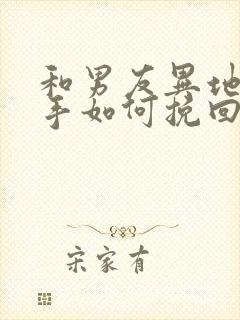 和男友异地
手如何挽回
宋家有